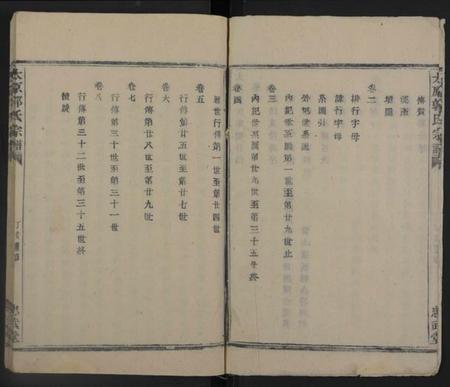 太原郭氏宗譜
傳賛
祀產
墳圖
卷二
排行字母
諱行字母
系圖引
外紀世系圖
卷三
內紀世系圖第一世至第廿九世止
內紀世系圖第三十世至第三十五世終
卷四
行傳第一世至第廿四世
卷五
行傳第廿五世至第廿七世
卷六
行傳第廿八世至第廿九世
卷七
行傳第三十世至第三十一世
卷八
行傳第三十二世至第三十五世終
後說
太原郭氏宗譜
忠武堂
忠武堂